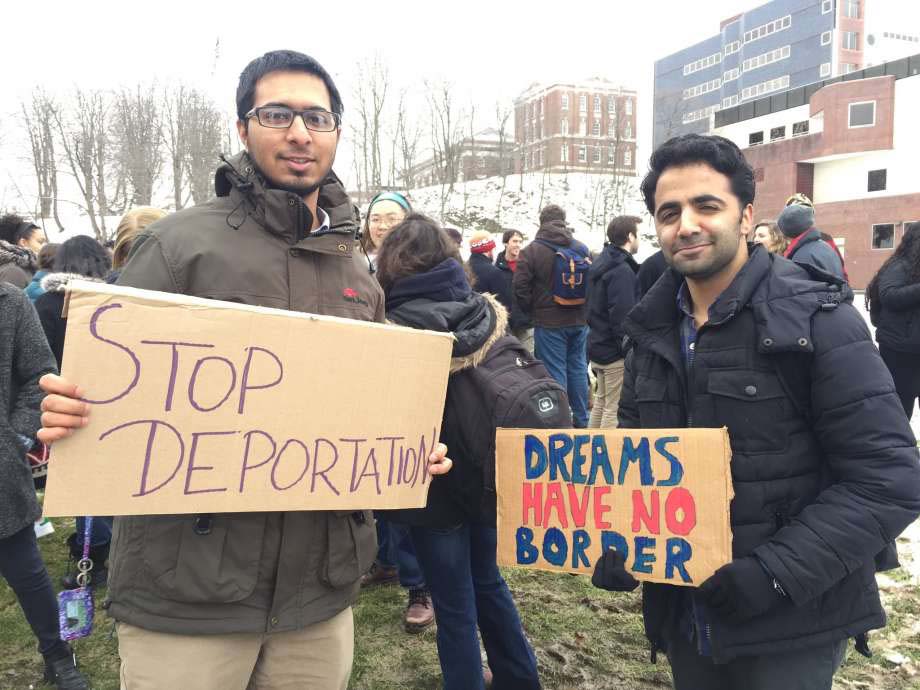 STOP
DEPORTATION
DREAMS
HAVE NO
BORDER